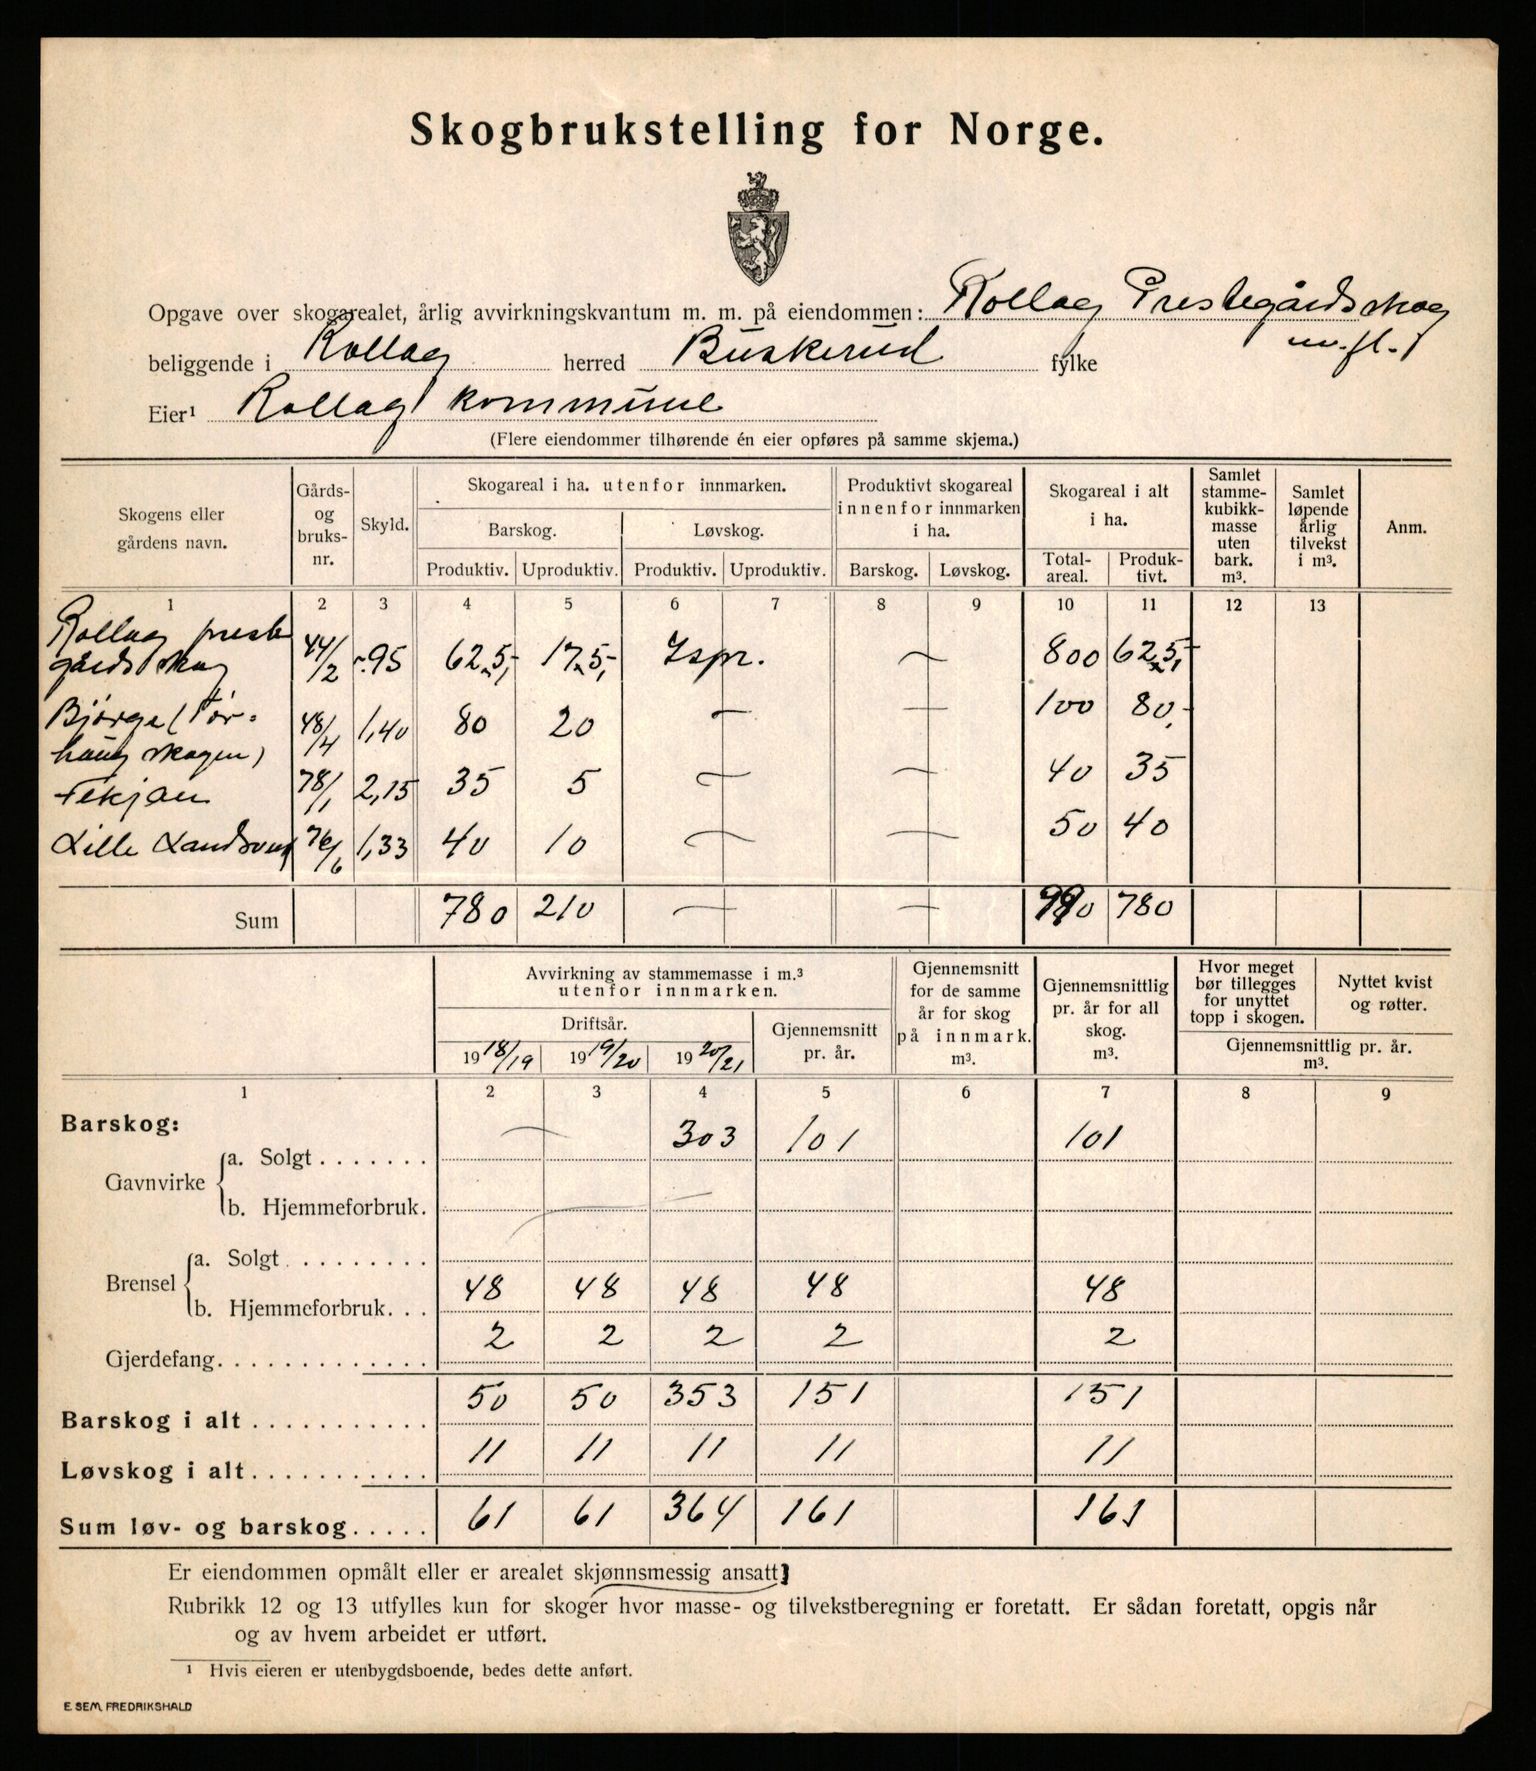 Skogbrukstelling for Norge.
Opgave over skogarealet, årlig avvirkningskvantum m. m. på eiendommen: Rollag Prestegårdsskog
m. fl.
beliggende i Rollag herred Buskerud fylke
Eier¹ Rollag kommune
(Flere eiendommer tilhørende én eier opføres på samme skjema.)
Skogens eller gårdens navn. Gårds- og bruks- nr. Skyld. Skogareal i ha. utenfor innmarken. Produktivt skogareal innenfor innmarken i ha. Skogareal i alt i ha. Samlet stamme- kubikk- masse uten bark. m³. Samlet løpende årlig tilvekst i m³. Anm.
Barskog. Løvskog.
Produktiv. Uproduktiv. Produktiv. Uproduktiv. Barskog. Løvskog. Total- areal. Produk- tivt.
1 2 3 4 5 6 7 8 9 10 11 12 13
Rollag preste
gårdsskog 44/2 -.95 625,- 175,- Ispr. — 800 625,-
Bjørge (Tør-
haug skogen) 48/4 1,40 80 20 — — 100 80,-
Fekjan 78/1 2,15 35 5 — — 40 35
Lille Landsverk 76/6 1,33 40 10 — — 50 40
Sum 780 210 — — 990 780
Avvirkning av stammemasse i m.³ utenfor innmarken. Gjennemsnitt for de samme år for skog på innmark. m³. Gjennemsnittlig pr. år for all skog. m³. Hvor meget bør tillegges for unyttet topp i skogen. Nyttet kvist og røtter.
Driftsår. Gjennemsnitt pr. år. Gjennemsnittlig pr. år. m³.
19 18/19 19 19/20 19 20/21
1 2 3 4 5 6 7 8 9
Barskog:
Gavnvirke a. Solgt....... — 303 101 101
b. Hjemmeforbruk. —
Brensel a. Solgt........
b. Hjemmeforbruk... 48 48 48 48 48
Gjerdefang............. 2 2 2 2 2
Barskog i alt........... 50 50 353 151 151
Løvskog i alt........... 11 11 11 11 11
Sum løv- og barskog..... 61 61 364 161 161
Er eiendommen opmålt eller er arealet skjønnsmessig ansatt?
Rubrikk 12 og 13 utfylles kun for skoger hvor masse- og tilvekstberegning er foretatt. Er sådan foretatt, opgis når
og av hvem arbeidet er utført.
¹ Hvis eieren er utenbygdsboende, bedes dette anført.
E. SEM, FREDRIKSHALD